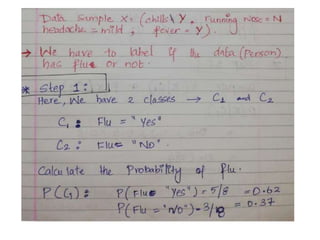 Data Sample X = (chills Y, running Nose = N
headache = mild, fever = Y).
→ We have to label if the data (Person)
has flue or not.
* Step 1:
Here, We have 2 classes → C1 and C2
C1 : Flu = "Yes"
C2 : Flu = "No".
Calculate the Probability of flu.
P(C1) : P(Flue "Yes") = 5/8 = 0.62
P(Flu = "No") = 3/8 = 0.37